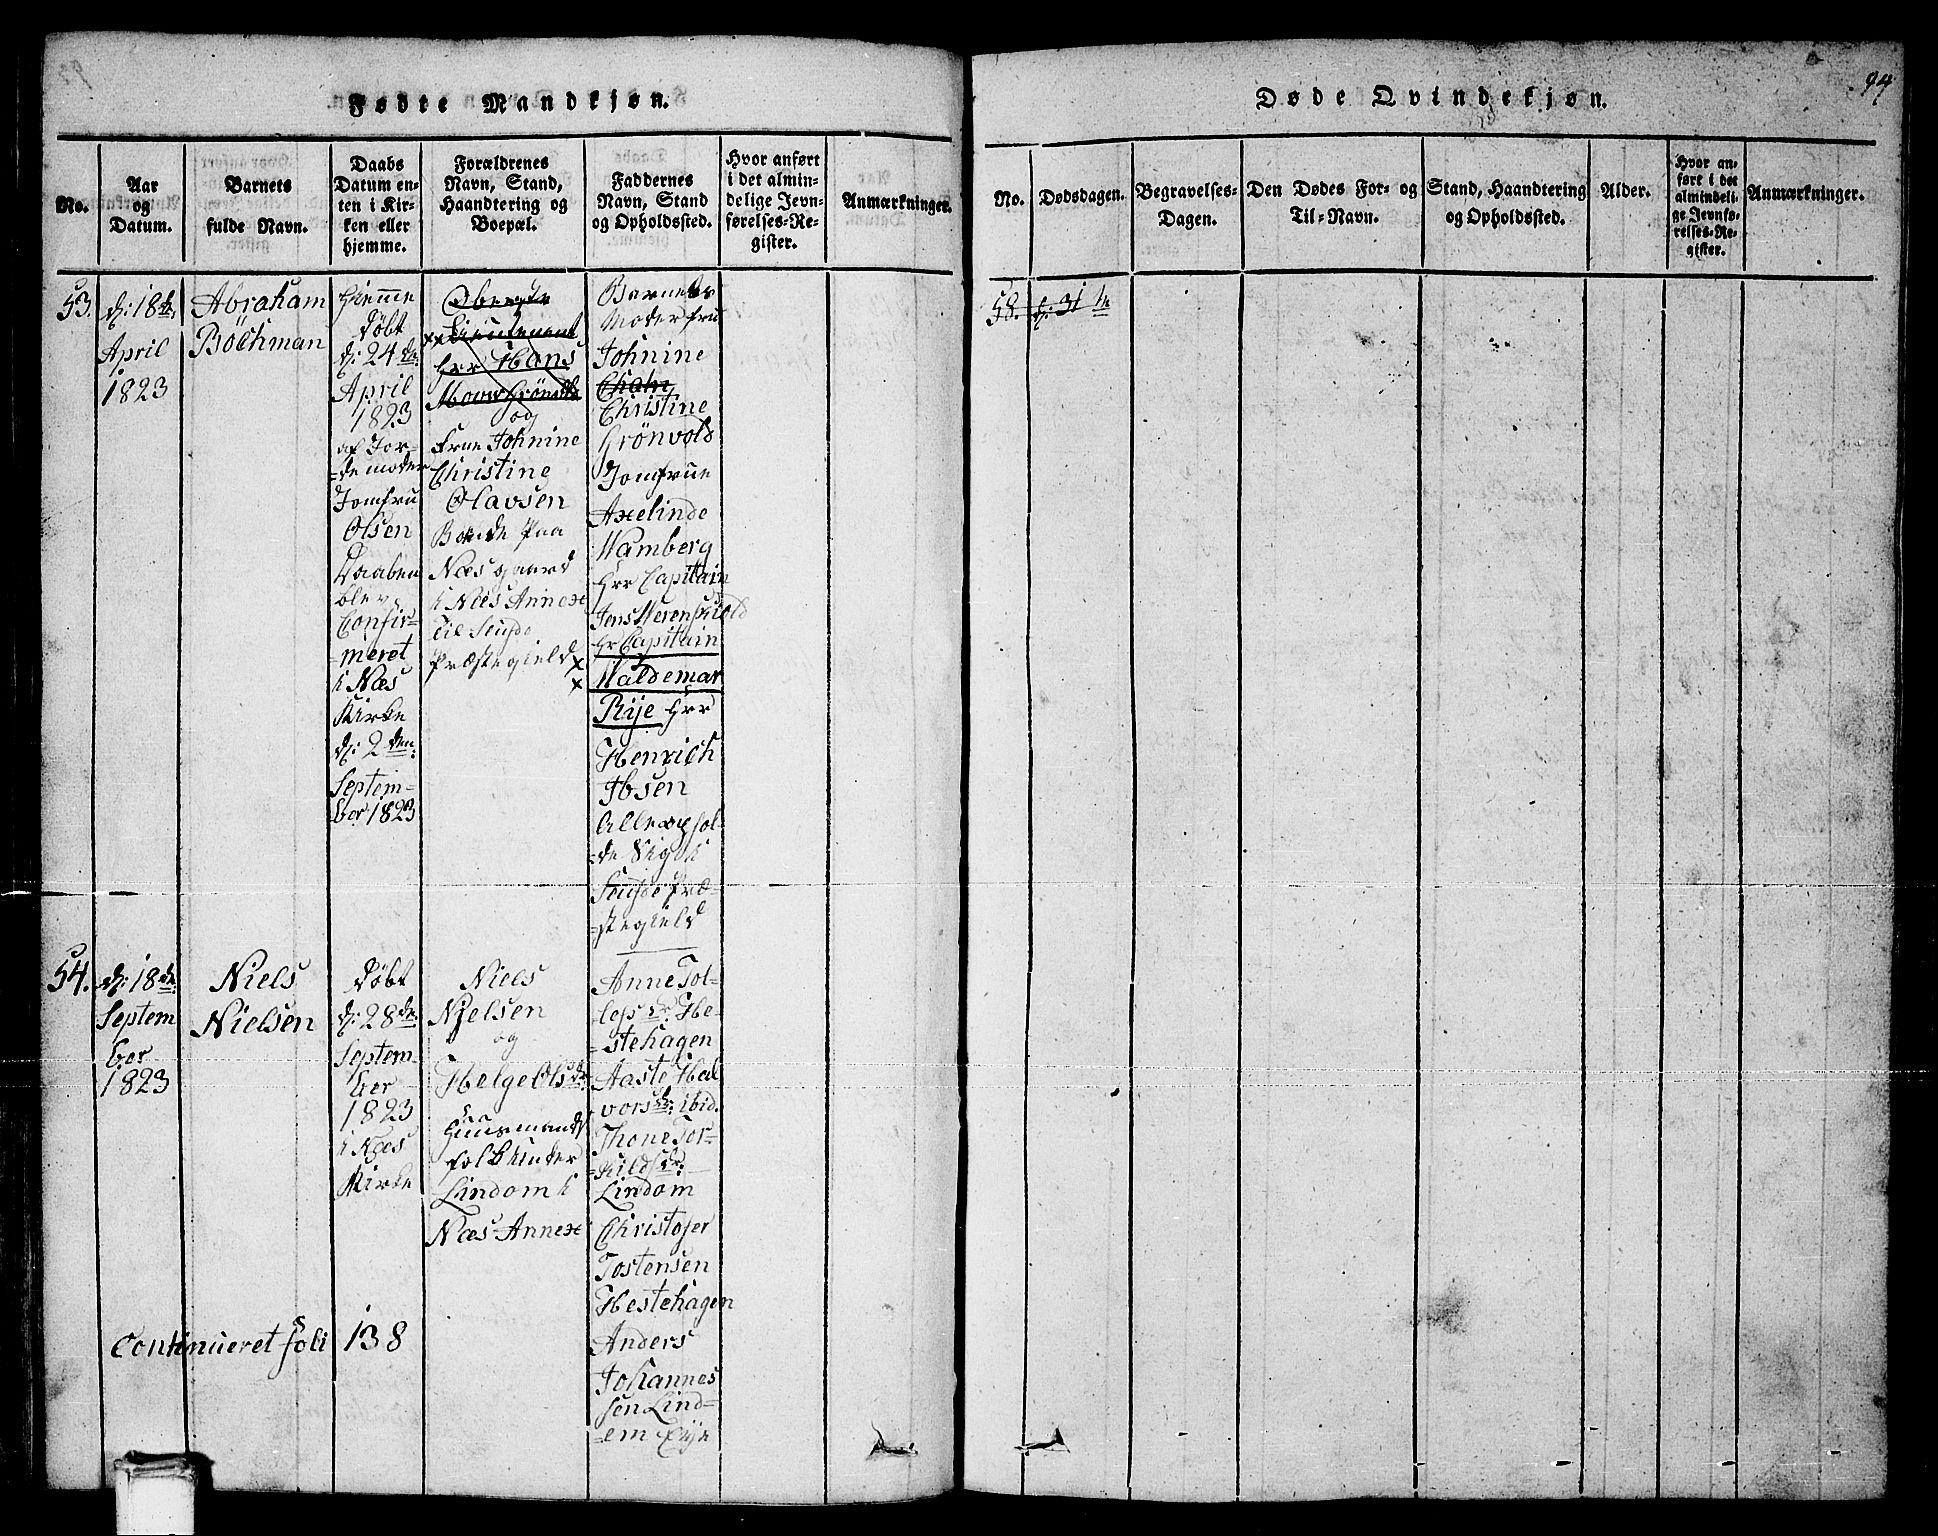 Fødte Mandkjøn.
No.
Aar
og
Datum.
Barnets
fulde Navn.
Daabs
Datum en-
ten i Kir-
ken eller
hjemme.
Forældrenes
Navn, Stand,
Haandtering og
Boepæl.
Faddernes
Navn, Stand
og Opholdssted.
Hvor anført
i det almin-
delige Jevn-
førelses-Re-
gister.
Anmærkninger.
53.
d: 18de
April
1823
Abraham
Böchman
Hiemme
Døbt
d: 24de
April
1823
af Jor-
=de moder
Jomfru
Olsen
Daaben
blev
Confir-
=meret
i Næs
Kirke
d: 2den
Septem-
ber 1823
Lieutenant
Herr Hans
og
Frue Johnine
Christine
Olavsen
Boende Paa
Næsgaard
i Næs Annex
Til
Præstegield
Barnets
Moder fru
Johnine
Christine
Grönvold
Jomfrue
Axelinde
Wamberg
Hrr Capitain
Hr Capitain
Waldemar
Rije Hrr
Henrich
Ibsen
Præ-
=stegield
54.
d: 18de
Septem
ber
1823
Niels
Nielsen
Døbt
d: 28de
Septem
ber
1823
i Næs
Kirke
Niels
Njelsen
og
Helge Olsdr
Huusmands
folk under
Lindom i
Næs Annex
Anne Tol-
lefsdr: He-
=stehagen
Aaste Hal
vorsdr: ibid.
Thone Tor-
=kildsdr:
Lindom
Christofer
Tostensen
Hestehagen
Anders
Johannes
sen Lind=
=em Eije
Continueret foli 138
94
Døde Qvindekjøn.
No.
Dødsdagen.
Begravelses-
Dagen.
Den Dødes For- og
Til-Navn.
Stand, Haandtering
og Opholdssted.
Alder.
Hvor an-
ført i det
almindeli-
ge Jevnfø-
relses-Re-
gister.
Anmærkninger.
58. d: 31te